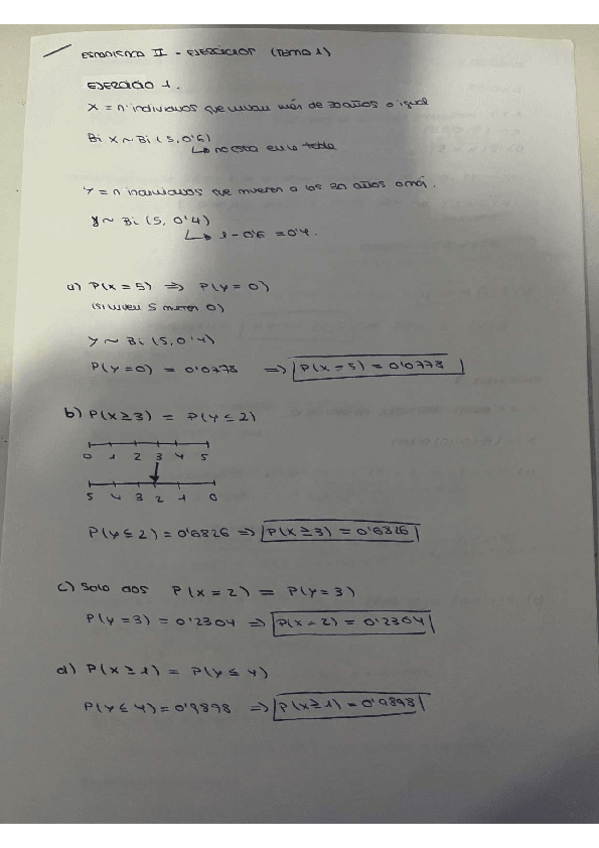 ESTADÍSTICA II - EJERCICIOS (TEMA 1)
EJERCICIO 1.
X = nº individuos que vivan más de 30 años o igual
Bi X ~ Bi (5, 0'6)
↳ no esta en la tabla
Y = nº individuos que mueren a los 30 años o más.
Y ~ Bi (5, 0'4)
↳ 1 - 0'6 = 0'4.
a) P(X = 5) => P(Y = 0)
(si viven 5 mueren 0)
Y ~ Bi (5, 0'4)
P(Y=0) = 0'0778 => P(X = 5) = 0'0778
b) P(X ≥ 3) = P(Y ≤ 2)
0 1 2 3 4 5
5 4 3 2 1 0
P(Y ≤ 2) = 0'6826 => P(X ≥ 3) = 0'6826
c) Solo dos P(X = 2) = P(Y = 3)
P(Y = 3) = 0'2304 => P(X = 2) = 0'2304
d) P(X ≥ 1) = P(Y ≤ 4)
P(Y ≤ 4) = 0'9898 => P(X ≥ 1) = 0'9898